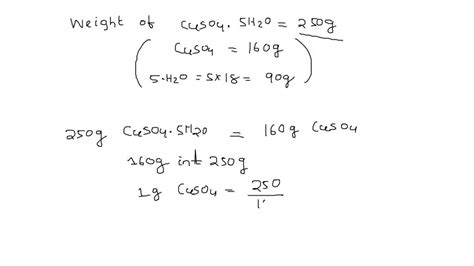 Weight of CuSO4. 5H2O = 250g
CuSO4 = 160g
5.H2O = 5x18 = 90g
250g CuSO4.5H2O = 160g CuSO4
160g in 250g
1g CuSO4 = 250